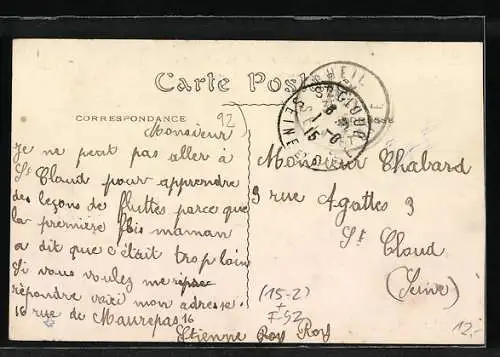 Carte Post
CORRESPONDANCE
92
Monsieur
Je ne peut pas aller à
St Claud pour apprendre
des leçons de fluttes parce que
la première fois maman
a dit que c'était trop loin
Si vous voulez me
répondre voici mon adresse.
16 rue de Maurepas 16
Etienne Roy Roy
Monsieur Chabard
3 rue Agattes 3
St Cloud
(Seine)
(15-2)
F-92
12,-